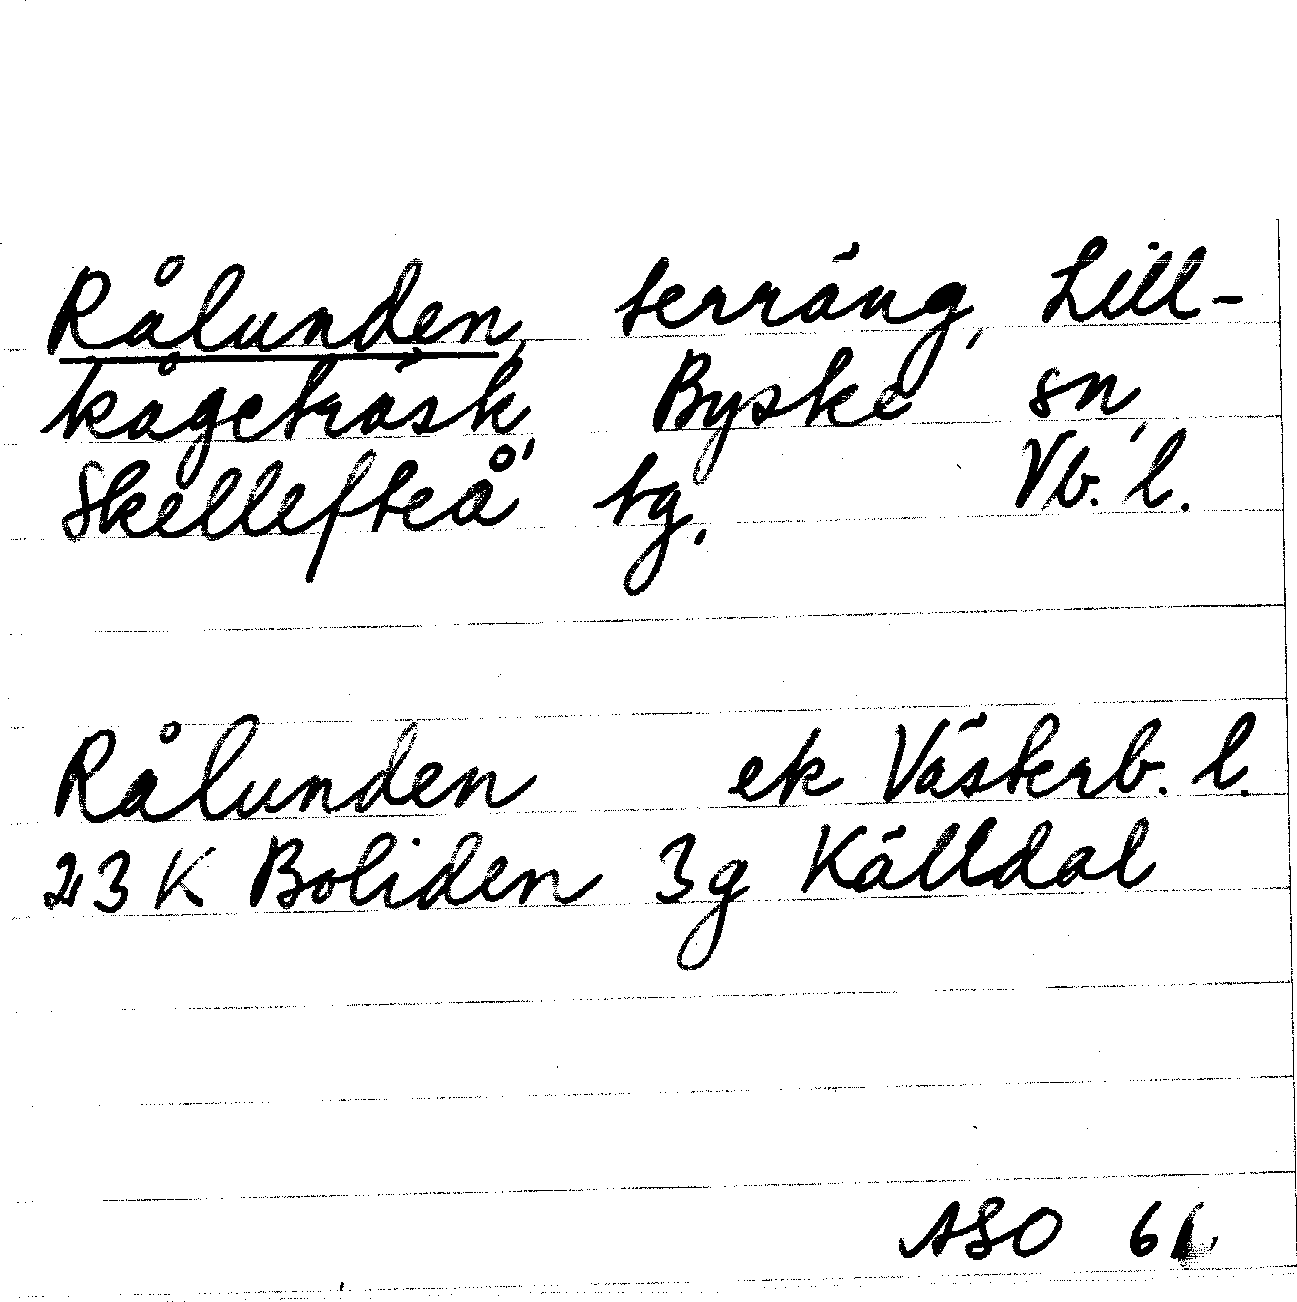 Rålunden, terräng, Lill-
kågeträsk, Byske sn,
Skellefteå tg. Vb. l.
Rålunden ek Västerb. l.
23 K Boliden 3g Källdal
ASO